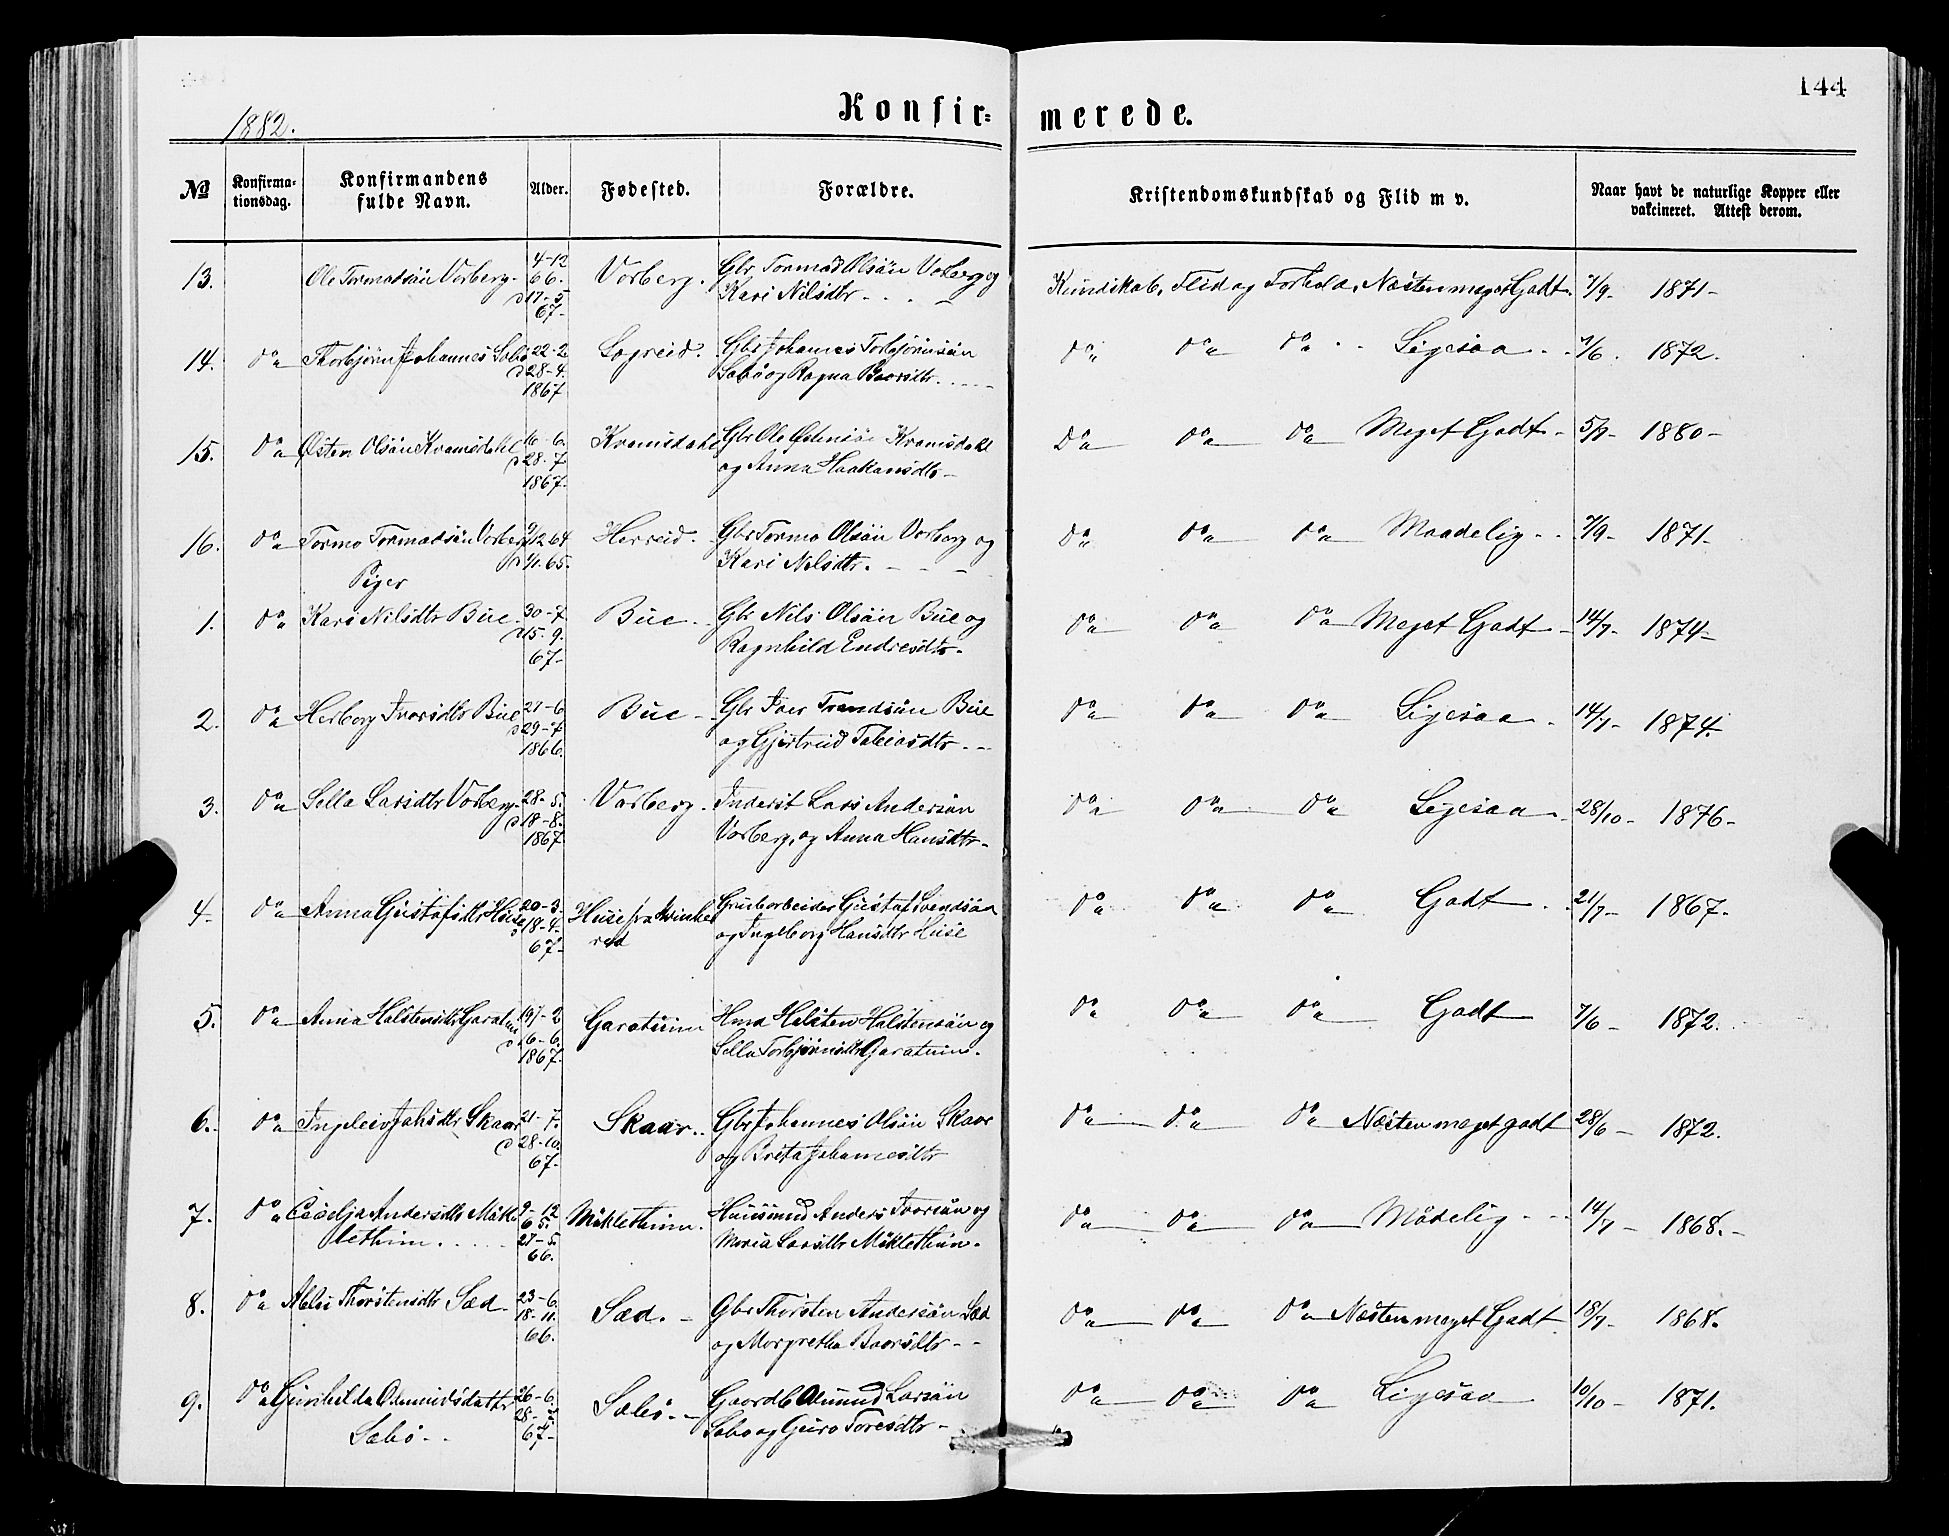 144
Konfir- merede.
1882.
No Konfirma-tionsdag. Konfirmandens fulde Navn. Alder. Fødested. Forældre. Kristendomskundskab og Flid m v. Naar havt de naturlige Kopper eller vakcineret. Attest derom.
13. Ole Tormodsön Vorberg. 4-12 66. d 17-3 67- Vorberg. Gbr Tormod Olsön Vorberg og Kari Nilsdtr - - - Kundskab, Flid og Forhold. Næsten meget Godt. 7/9- 1871-
14. Do Thorbjörn Johannes Sebö 22-2 d 28-4. 1867 Gbr Johannes Torbjörnsön Sebö og Ragna Baarsdtr. Do Do Do Ligesaa 7/6. 1872.
15. Do Østen Olsön Kramsdahl 16-6. d 28-7 1867. Kramsdahl Gbr Ole Kramsdahl og Anna Haakansdtr- Do Do Do Meget Godt- 5/7- 1880-
16. Do Tormo Tormodsön Vorberg 9/12 64 d 1/1. 65. Herreid. Gbr Tormo Olsön Vorberg og Kari Nilsdtr. Do Do Do Maadelig - - 7/9- 1871-
Piger
1. Do Kari Nilsdtr Bue 30-7 d 15-9. 67- Bue. Gbr Nils Olsön Bue og Ragnhild Endresdtr. Do Do Do Meget Godt - 14/7- 1874-
2. Do Herborg Ivarsdtr Bue 27-6 d 29-7 1866. Bue - Gbr Iver Trondsön Bue og Gjertrud Tobiasdtr. - Do Do Do Ligesaa. 14/7- 1874.
3. Do Sella Larsdtr Vorberg 28-5. d 18-8. 1867 Vorberg. Inderst Lars Andersön Vorberg, og Anna Hansdtr- Do Do Do Ligesaa - 28/10- 1876-
4. Do Anna Gustafsdtr Huse 20-3. d 18-4. 67- Huse fra Kvinherred Grubarbeider Gustaf Svendsön og Ingeborg Hansdtr Huse Do Do Do Godt. 21/7- 1867.
5. Do Anna Halstensdtr Garatun 19/-2 d 16-6. 1867. Garatuun Hmd Halsten Halstensön og Sella Torbjörnsdtr Garatuun. Do Do Do Godt 7/6- 1872.
6. Do Ingeleiv Johsdtr Skaar 21-7. d 28-10 67- Skaar.. Gbr Johannes Olsön Skaar og Brita Johannesdtr Do Do Do Næsten meget godt 28/6- 1872.
7. Do Ceselja Andersdtr Mäklethun. 9-12 65. 27-5. 66. Mäklethun. Huusmnd Anders Ivarsön og Maria Larsdtr Mäklethun. Do Do Do Mådelig - - - 14/7- 1868.-
8. Do Thorstensdtr Sæd- 23-6. 18-11. 66. Sæd. - Gbr Thorsten Andersön Sæd og Margretha Baarsdtr- - Do Do Do Næsten meget Godt 18/7- 1868.
9. Do Gunhilda Odmundsdatter Sæbö. - 26-6. 28-7 67- Sæbö. - Gaardb Omund Larsön Sæbö og Guro Toresdtr- Do Do Do Ligesaa 10/10- 1871.